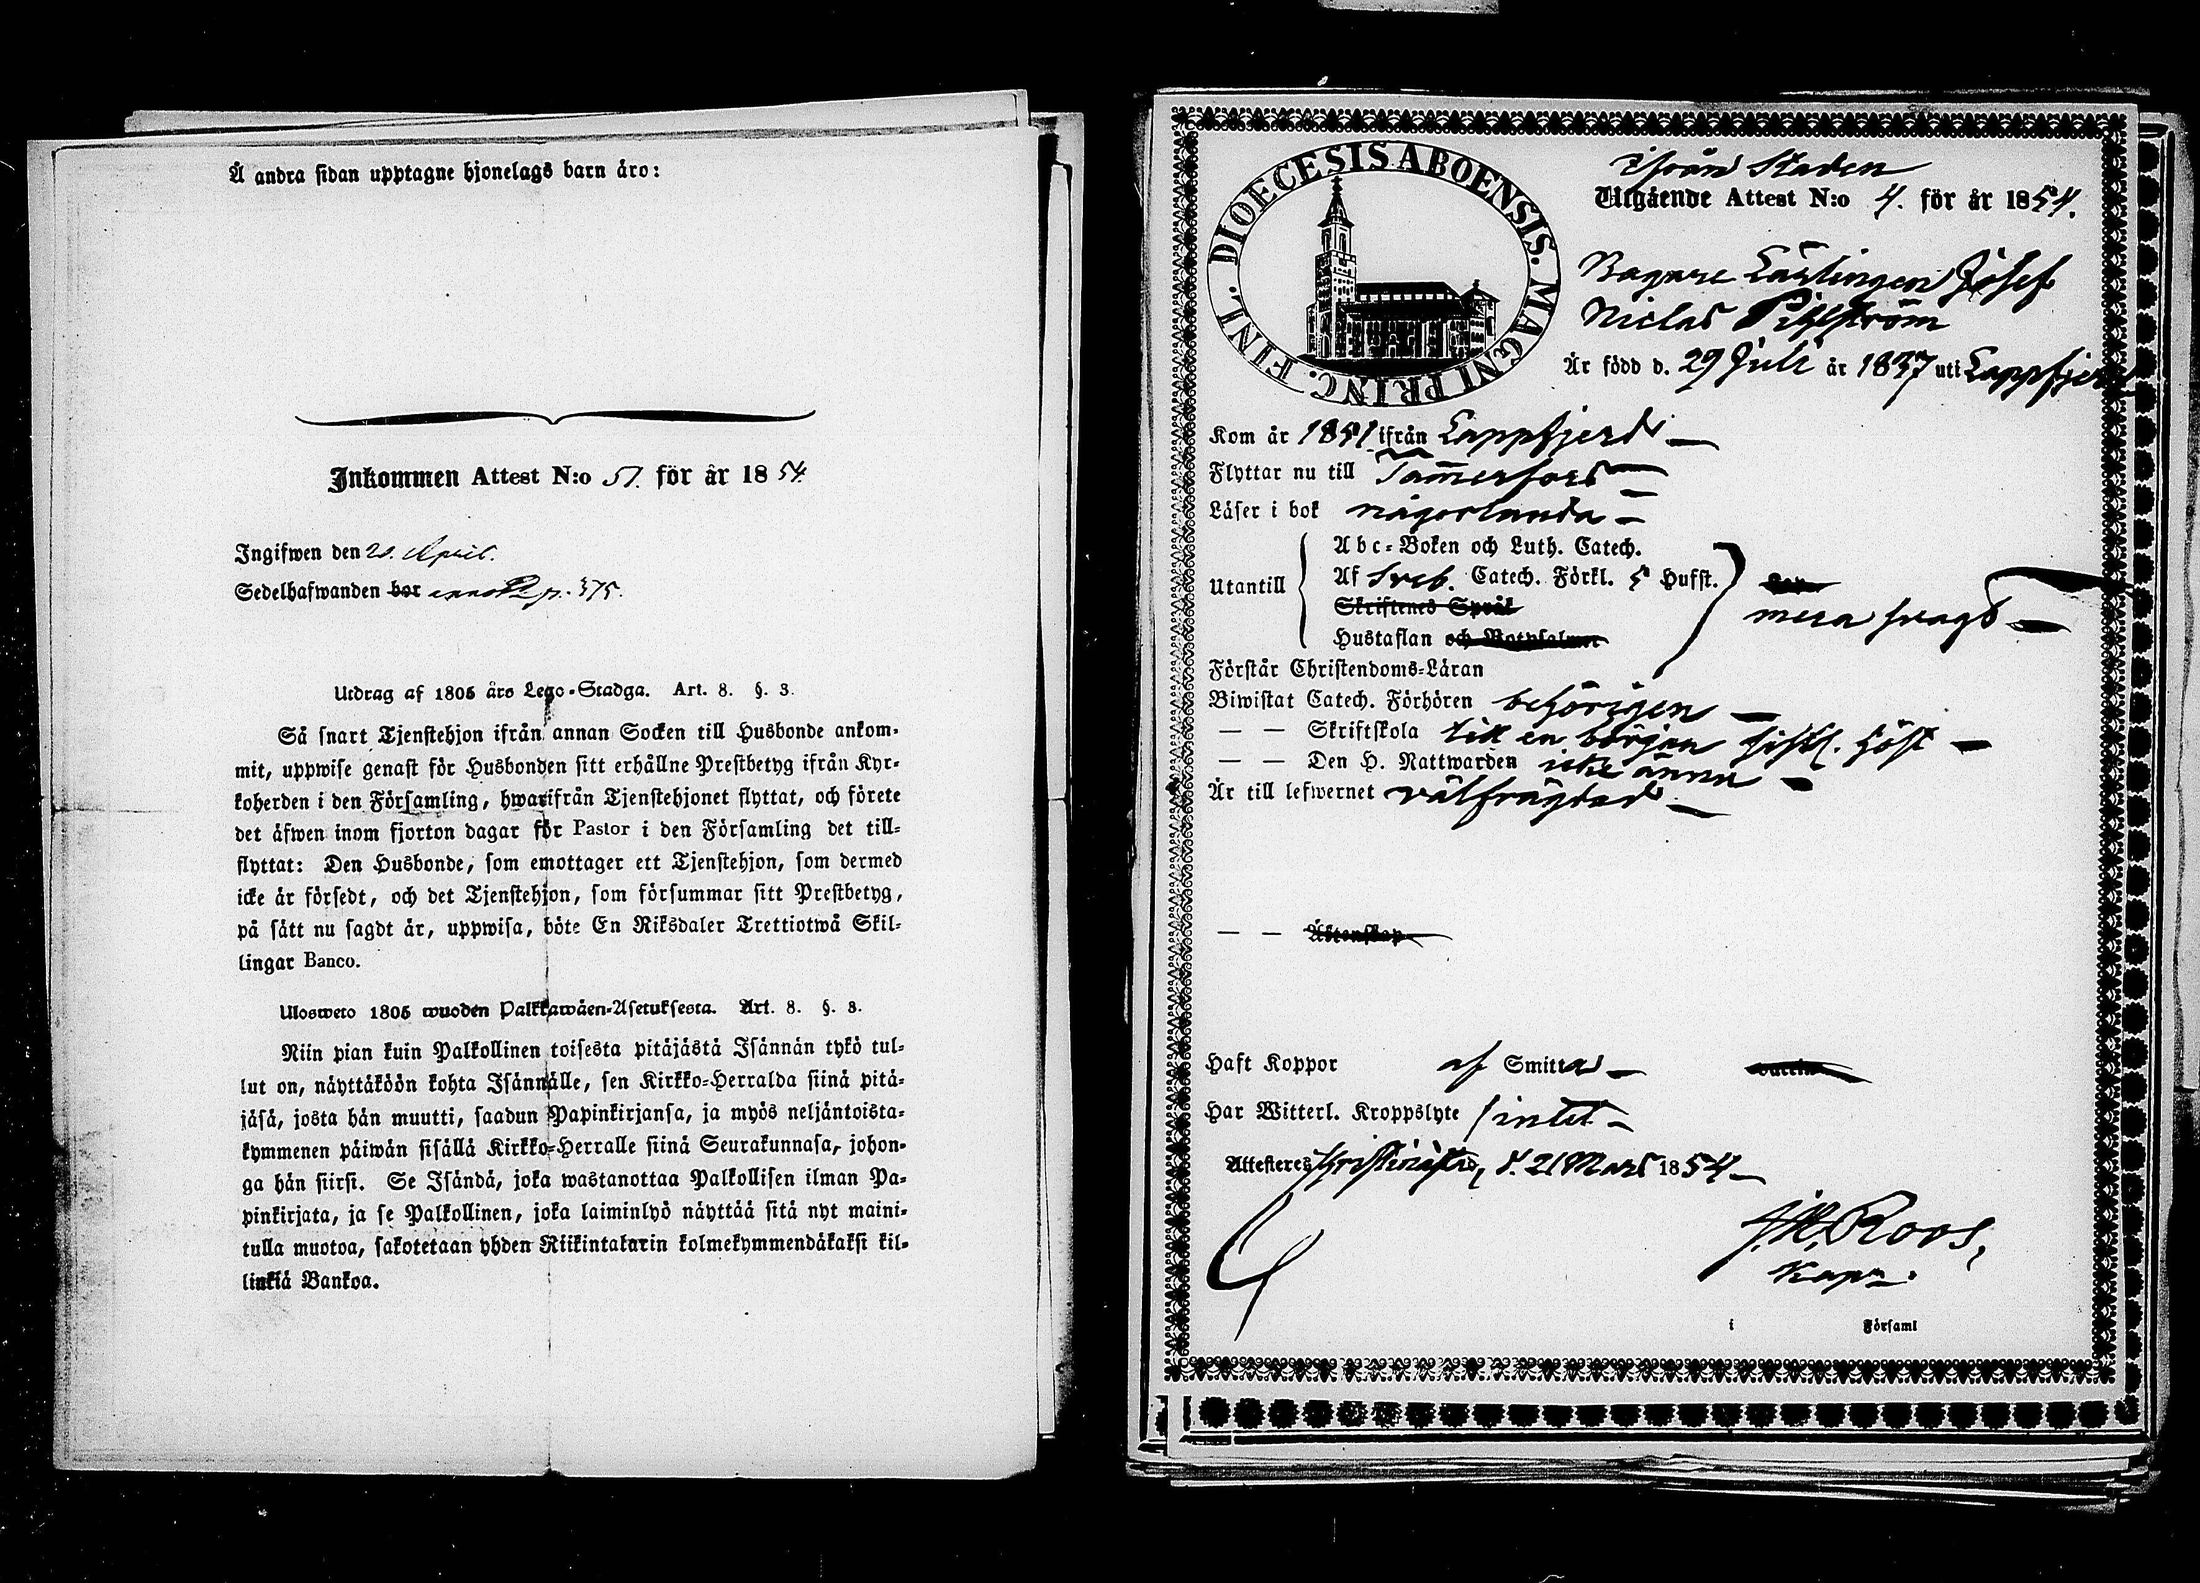 Å andra sidan upptagne hjonelags barn äro:
Inkommen Attest N:o 51. för år 1854.
Ingifwen den 20. April.
Sedelhafwanden bor p. 375.
Utdrag af 1805 års Lego-Stadga. Art. 8. §. 3.
Så snart Tjenstehjon ifrån annan Socken till Husbonde ankom-
mit, uppwise genast för Husbonden sitt erhållne Prestbetyg ifrån Kyr-
koherden i den Församling, hwarifrån Tjenstehjonet flyttat, och förete
det äfwen inom fjorton dagar för Pastor i den Församling det till-
flyttat: Den Husbonde, som emottager ett Tjenstehjon, som dermed
icke är försedt, och det Tjenstehjon, som försummar sitt Prestbetyg,
på sätt nu sagdt är, uppwisa, böte En Riksdaler Trettiotwå Skil-
lingar Banco.
Ulosweto 1805 wuoden Palkkawäen-Asetuksesta. Art. 8. §. 3.
Niin pian kuin Palkollinen toisesta pitäjästä Isännän tykö tul-
lut on, näyttäköön kohta Isännälle, sen Kirkko-Herralda siinä pitä-
jäsä, josta hän muutti, saadun Papinkirjansa, ja myös neljäntoista-
kymmenen päiwän sisällä Kirkko-Herralle siinä Seurakunnasa, johon-
ga hän siirsi. Se Isändä, joka wastanottaa Palkollisen ilman Pa-
pinkirjata, ja se Palkollinen, joka laiminlyö näyttää sitä nyt maini-
tulla muotoa, sakotetaan yhden Riikintalarin kolmekymmendäkaksi kil-
linkiä Bankoa.
DIOECESIS ABOENSIS. MAGNI PRINC. FINL.
ifrån Staden
Utgående Attest N:o 4. för år 1854.
Bagare Lärlingen Josef
Niclas Pihlström
Är född d. 29 Juli år 1837 uti Lappfjerd
Kom år 1851 ifrån Lappfjerd
Flyttar nu till Tammerfors
Läser i bok någorlunda
Utantill
Abc-Boken och Luth. Catech.
Af Sveb. Catech. Förkl. 5 Hufst.
Skriftenes Språk
Hustaflan och Botpsalmer
mera svagt
Förstår Christendoms-Läran
Biwistat Catech. Förhören behörigen
— — Skriftskola till en början sistl. höst
— — Den H. Nattwarden icke ännu
Är till lefwernet välfrägdad
— — Äktenskap
Haft Koppor af Smittas
Har Witterl. Kroppslyte intet
Attesteres Christinestad, d. 21 Mars 1854
Roos,
Kapn.
i Församl